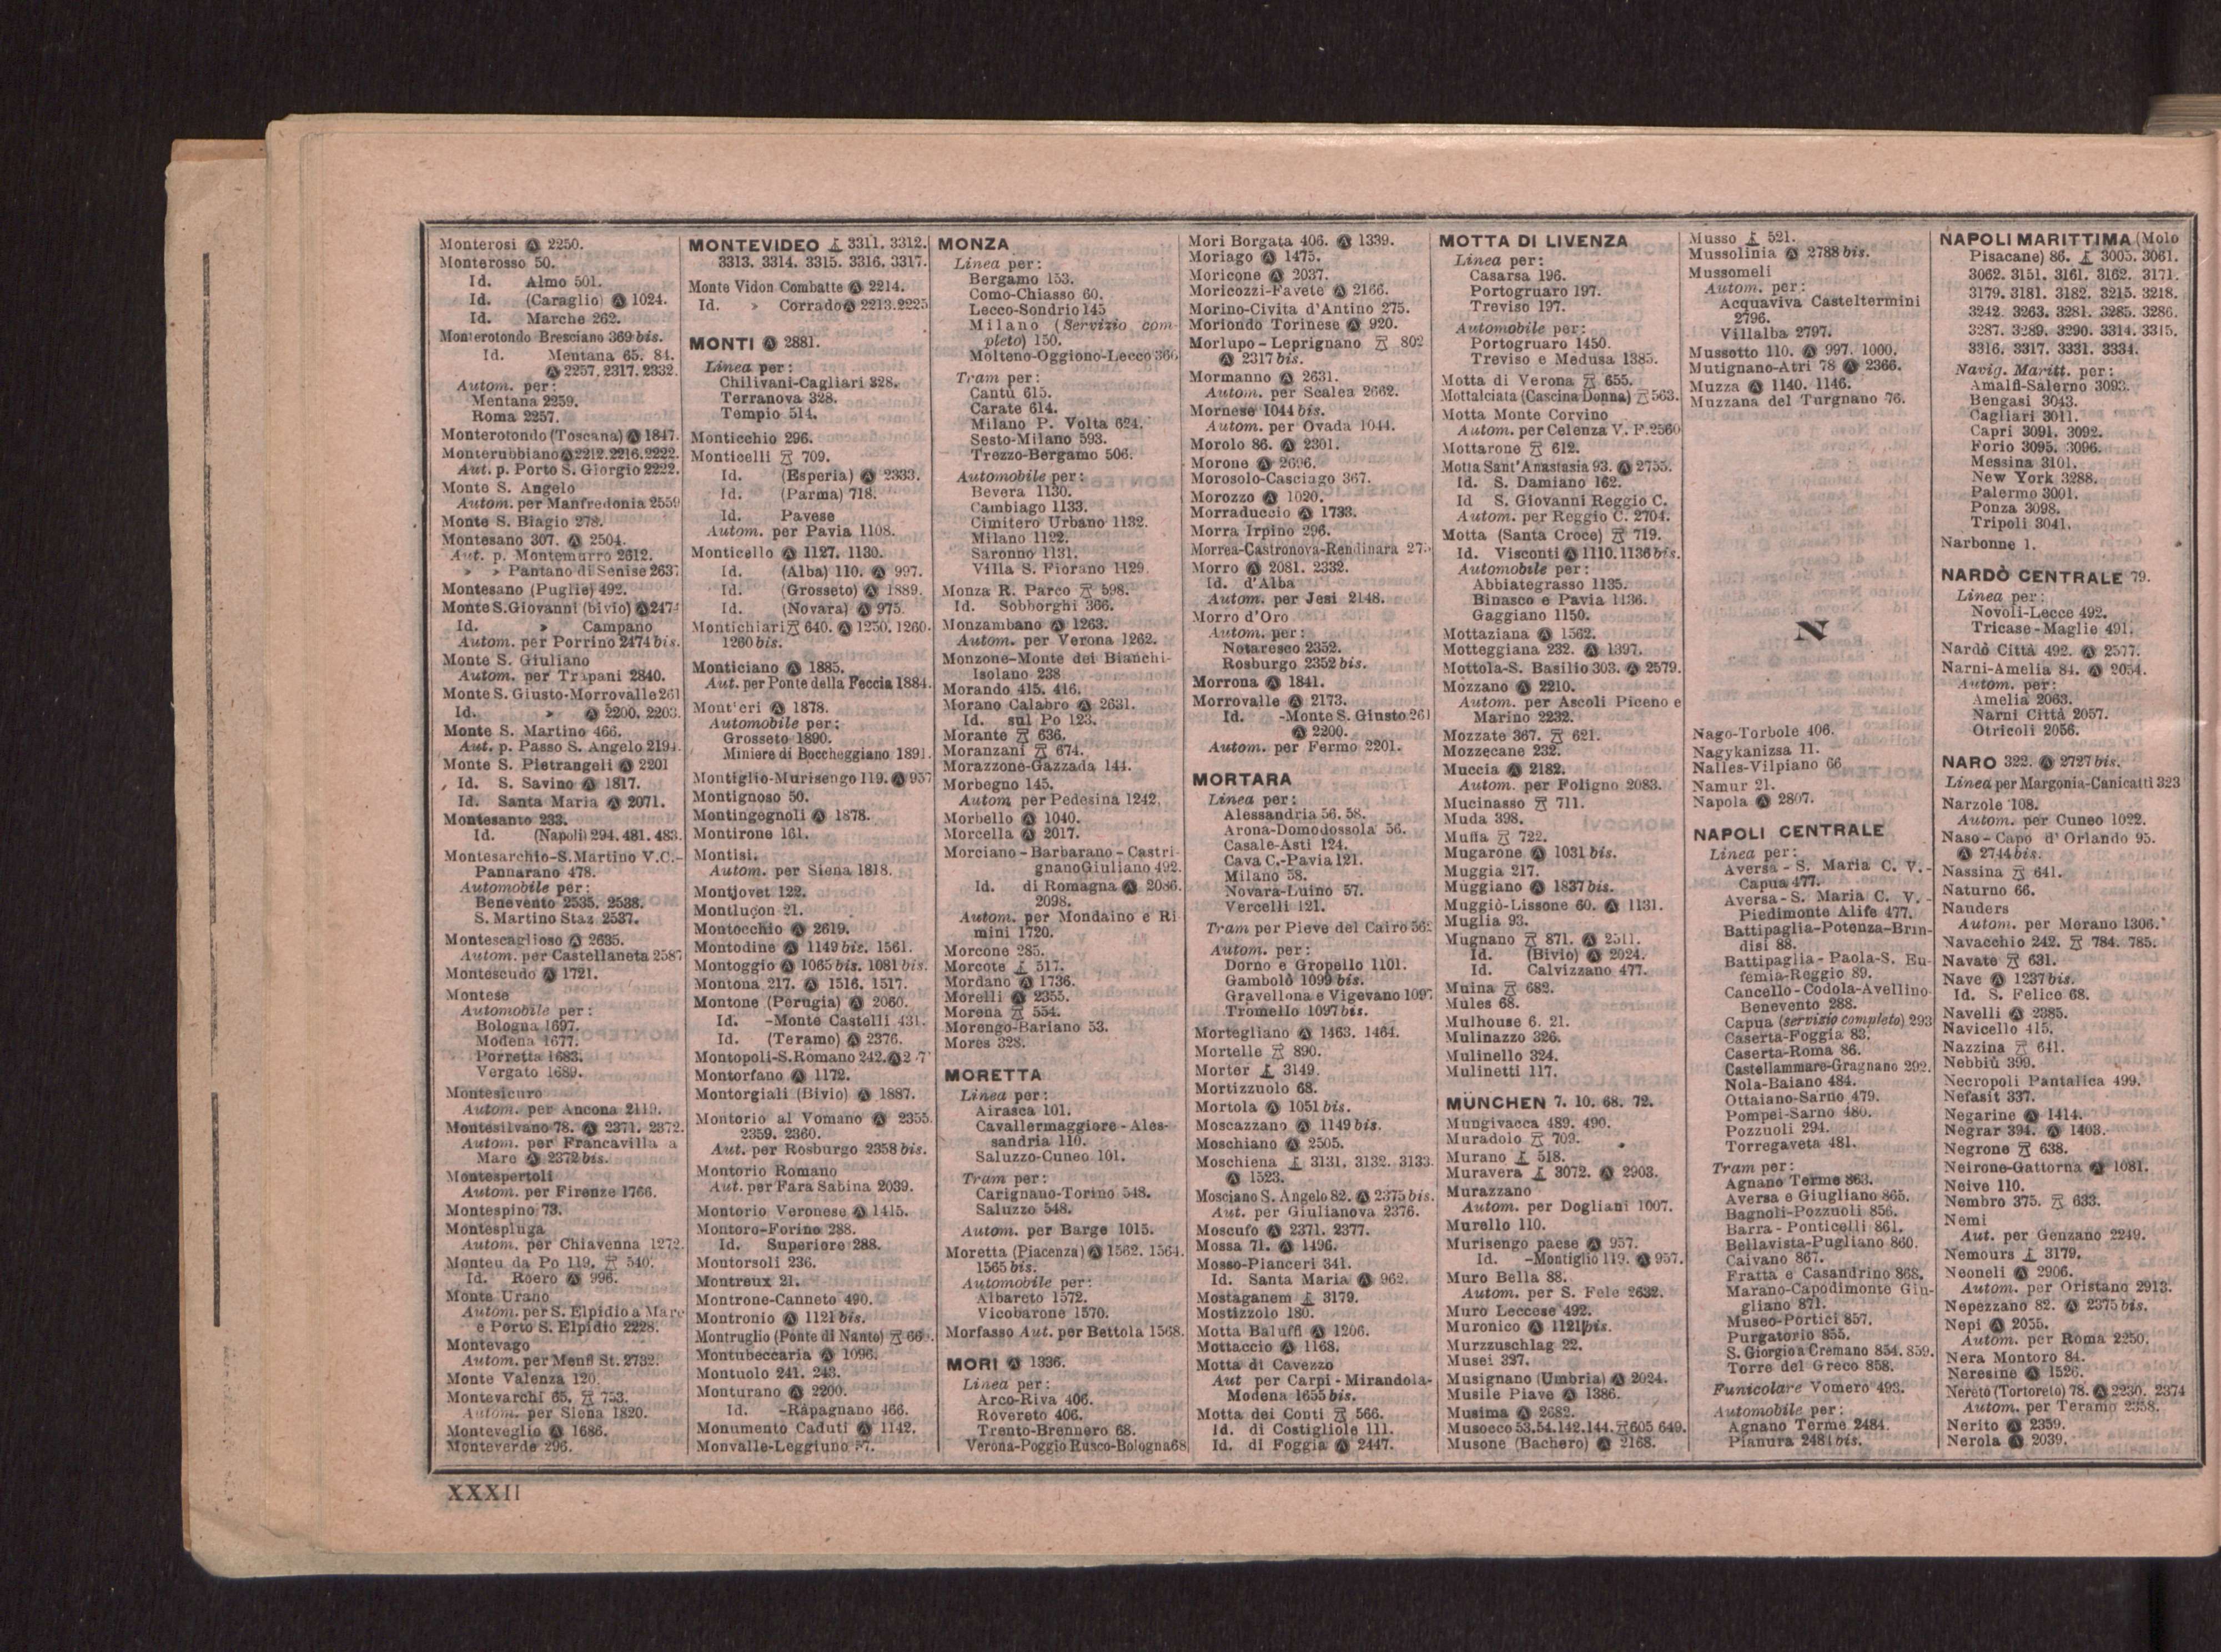 Monterosi Ⓐ 2250.
Monterosso 50.
Id. Almo 501.
Id. (Caraglio) Ⓐ 1024.
Id. Marche 262.
Monterotondo Bresciano 369 bis.
Id. Mentana 65. 84.
Ⓐ 2257. 2317. 2332.
Autom. per:
Mentana 2259.
Roma 2257.
Monterotondo (Toscana) Ⓐ 1847.
Monterubbiano Ⓐ 2212. 2216. 2222.
Aut. p. Porto S. Giorgio 2222.
Monte S. Angelo
Autom. per Manfredonia 2559
Monte S. Biagio 278.
Montesano 307. Ⓐ 2504.
Aut. p. Montemurro 2612.
» » Pantano di Senise 2637
Montesano (Puglie) 492.
Monte S. Giovanni (bivio) Ⓐ 247
Id. » Campano
Autom. per Porrino 2474 bis.
Monte S. Giuliano
Autom. per Trapani 2840.
Monte S. Giusto-Morrovalle 261
Id. » Ⓐ 2200. 2203.
Monte S. Martino 466.
Aut. p. Passo S. Angelo 2194.
Monte S. Pietrangeli Ⓐ 2201
Id. S. Savino Ⓐ 1817.
Id. Santa Maria Ⓐ 2071.
Montesanto 233.
Id. (Napoli) 294. 481. 483.
Montesarchio-S. Martino V.C.-
Pannarano 478.
Automobile per:
Benevento 2535. 2538.
S. Martino Staz 2537.
Montescaglioso Ⓐ 2635.
Autom. per Castellaneta 2587
Montescudo Ⓐ 1721.
Montese
Automobile per:
Bologna 1697.
Modena 1677.
Porretta 1683.
Vergato 1689.
Montesicuro
Autom. per Ancona 2119.
Montesilvano 78. Ⓐ 2371. 2372.
Autom. per Francavilla a
Mare Ⓐ 2372 bis.
Montespertoli
Autom. per Firenze 1766.
Montespino 73.
Montespluga
Autom. per Chiavenna 1272.
Monteu da Po 119. 540.
Id. Roero Ⓐ 996.
Monte Urano
Autom. per S. Elpidio a Mare
e Porto S. Elpidio 2228.
Montevago
Autom. per Menfi St. 2732.
Monte Valenza 120.
Montevarchi 65. 753.
Autom. per Siena 1820.
Monteveglio Ⓐ 1686.
Monteverde 296.
MONTEVIDEO 3311. 3312.
3313. 3314. 3315. 3316. 3317.
Monte Vidon Combatte Ⓐ 2214.
Id. » Corrado Ⓐ 2213. 2225
MONTI Ⓐ 2881.
Linea per:
Chilivani-Cagliari 328.
Terranova 328.
Tempio 514.
Monticchio 296.
Monticelli 709.
Id. (Esperia) Ⓐ 2333.
Id. (Parma) 718.
Id. Pavese
Autom. per Pavia 1108.
Monticello Ⓐ 1127. 1130.
Id. (Alba) 110. Ⓐ 997.
Id. (Grosseto) Ⓐ 1889.
Id. (Novara) Ⓐ 975.
Montichiari 640. Ⓐ 1250. 1260.
1260 bis.
Monticiano Ⓐ 1885.
Aut. per Ponte della Feccia 1884.
Mont'eri Ⓐ 1878.
Automobile per:
Grosseto 1890.
Miniere di Boccheggiano 1891.
Montiglio-Murisengo 119. Ⓐ 957
Montignoso 50.
Montingegnoli Ⓐ 1878.
Montirone 161.
Montisi.
Autom. per Siena 1818.
Montjovet 122.
Montluçon 21.
Montocchio Ⓐ 2619.
Montodine Ⓐ 1149 bis. 1561.
Montoggio Ⓐ 1065 bis. 1081 bis.
Montona 217. Ⓐ 1516. 1517.
Montone (Perugia) Ⓐ 2060.
Id. -Monte Castelli 431.
Id. (Teramo) Ⓐ 2376.
Montopoli-S. Romano 242. Ⓐ
Montorfano Ⓐ 1172.
Montorgiali (Bivio) Ⓐ 1887.
Montorio al Vomano Ⓐ 2355.
2359. 2360.
Aut. per Rosburgo 2358 bis.
Montorio Romano
Aut. per Fara Sabina 2039.
Montorio Veronese Ⓐ 1415.
Montoro-Forino 288.
Id. Superiore 288.
Montorsoli 236.
Montreux 21.
Montrone-Canneto 490.
Montronio Ⓐ 1121 bis.
Montruglio (Ponte di Nanto)
Montubeccaria Ⓐ 1096.
Montuolo 241. 243.
Monturano Ⓐ 2200.
Id. -Rapagnano 466.
Monumento Caduti Ⓐ 1142.
Monvalle-Leggiuno 57.
MONZA
Linea per:
Bergamo 153.
Como-Chiasso 60.
Lecco-Sondrio 145
Milano (Servizio com-
pleto) 150.
Molteno-Oggiono-Lecco 366
Tram per:
Cantù 615.
Carate 614.
Milano P. Volta 624.
Sesto-Milano 593.
Trezzo-Bergamo 506.
Automobile per:
Bevera 1130.
Cambiago 1133.
Cimitero Urbano 1132.
Milano 1122.
Saronno 1131.
Villa S. Fiorano 1129.
Monza R. Parco 598.
Id. Sobborghi 366.
Monzambano Ⓐ 1263.
Autom. per Verona 1262.
Monzone-Monte dei Bianchi-
Isolano 238
Morando 415. 416.
Morano Calabro Ⓐ 2631.
Id. sul Po 123.
Morante 636.
Moranzani 674.
Morazzone-Gazzada 144.
Morbegno 145.
Autom per Pedesina 1242.
Morbello Ⓐ 1040.
Morcella Ⓐ 2017.
Morciano - Barbarano - Castri-
gnano Giuliano 492.
Id. di Romagna Ⓐ 2086.
2098.
Autom. per Mondaino e Ri
mini 1720.
Morcone 285.
Morcote 517.
Mordano Ⓐ 1736.
Morelli Ⓐ 2355.
Morena 554.
Morengo-Bariano 53.
Mores 328.
MORETTA
Linea per:
Airasca 101.
Cavallermaggiore - Ales-
sandria 110.
Saluzzo-Cuneo 101.
Tram per:
Carignano-Torino 548.
Saluzzo 548.
Autom. per Barge 1015.
Moretta (Piacenza) Ⓐ 1562. 1564.
1565 bis.
Automobile per:
Albareto 1572.
Vicobarone 1570.
Morfasso Aut. per Bettola 1568.
MORI Ⓐ 1336.
Linea per:
Arco-Riva 406.
Rovereto 406.
Trento-Brennero 68.
Verona-Poggio Rusco-Bologna 68
Mori Borgata 406. Ⓐ 1339.
Moriago Ⓐ 1475.
Moricone Ⓐ 2037.
Moricozzi-Favete Ⓐ 2166.
Morino-Civita d'Antino 275.
Moriondo Torinese Ⓐ 920.
Morlupo - Leprignano 802
Ⓐ 2317 bis.
Mormanno Ⓐ 2631.
Autom. per Scalea 2662.
Mornese 1044 bis.
Autom. per Ovada 1044.
Morolo 86. Ⓐ 2301.
Morone Ⓐ 2696.
Morosolo-Casciago 367.
Morozzo Ⓐ 1020.
Morraduccio Ⓐ 1733.
Morra Irpino 296.
Morrea-Castronova-Rendinara 275
Morro Ⓐ 2081. 2332.
Id. d'Alba
Autom. per Jesi 2148.
Morro d'Oro
Autom. per:
Notaresco 2352.
Rosburgo 2352 bis.
Morrona Ⓐ 1841.
Morrovalle Ⓐ 2173.
Id. -Monte S. Giusto 261
Ⓐ 2200.
Autom. per Fermo 2201.
MORTARA
Linea per:
Alessandria 56. 58.
Arona-Domodossola 56.
Casale-Asti 124.
Cava C.-Pavia 121.
Milano 58.
Novara-Luino 57.
Vercelli 121.
Tram per Pieve del Cairo 562
Autom. per:
Dorno e Gropello 1101.
Gambolò 1099 bis.
Gravellona e Vigevano 1097
Tromello 1097 bis.
Mortegliano Ⓐ 1463. 1464.
Mortelle 890.
Morter 3149.
Mortizzuolo 68.
Mortola Ⓐ 1051 bis.
Moscazzano Ⓐ 1149 bis.
Moschiano Ⓐ 2505.
Moschiena 3131. 3132. 3133.
Ⓐ 1523.
Mosciano S. Angelo 82. Ⓐ 2375 bis.
Aut. per Giulianova 2376.
Moscufo Ⓐ 2371. 2377.
Mossa 71. Ⓐ 1496.
Mosso-Pianceri 341.
Id. Santa Maria Ⓐ 962.
Mostaganem 3179.
Mostizzolo 180.
Motta Baluffi Ⓐ 1206.
Mottaccio Ⓐ 1168.
Motta di Cavezzo
Aut per Carpi - Mirandola-
Modena 1655 bis.
Motta dei Conti 566.
Id. di Costigliole 111.
Id. di Foggia Ⓐ 2447.
MOTTA DI LIVENZA
Linea per:
Casarsa 196.
Portogruaro 197.
Treviso 197.
Automobile per:
Portogruaro 1450.
Treviso e Medusa 1385.
Motta di Verona 655.
Mottalciata (Cascina Donna) 563.
Motta Monte Corvino
Autom. per Celenza V. F. 2560
Mottarone 612.
Motta Sant'Anastasia 93. Ⓐ 2755.
Id. S. Damiano 162.
Id S. Giovanni Reggio C.
Autom. per Reggio C. 2704.
Motta (Santa Croce) 719.
Id. Visconti Ⓐ 1110. 1136 bis.
Automobile per:
Abbiategrasso 1135.
Binasco e Pavia 1136.
Gaggiano 1150.
Mottaziana Ⓐ 1562.
Motteggiana 232. Ⓐ 1397.
Mottola-S. Basilio 303. Ⓐ 2579.
Mozzano Ⓐ 2210.
Autom. per Ascoli Piceno e
Marino 2232.
Mozzate 367. 621.
Mozzecane 232.
Muccia Ⓐ 2182.
Autom. per Foligno 2083.
Mucinasso 711.
Muda 398.
Muffa 722.
Mugarone Ⓐ 1031 bis.
Muggia 217.
Muggiano Ⓐ 1837 bis.
Muggiò-Lissone 60. Ⓐ 1131.
Muglia 93.
Mugnano 871. Ⓐ 2511.
Id. (Bivio) Ⓐ 2024.
Id. Calvizzano 477.
Muina 682.
Mules 68.
Mulhouse 6. 21.
Mulinazzo 326.
Mulinello 324.
Mulinetti 117.
MÜNCHEN 7. 10. 68. 72.
Mungivacca 489. 490.
Muradolo 709.
Murano 518.
Muravera 3072. Ⓐ 2903.
Murazzano
Autom. per Dogliani 1007.
Murello 110.
Murisengo paese Ⓐ 957.
Id. -Montiglio 119. Ⓐ 957.
Muro Bella 88.
Autom. per S. Fele 2632.
Muro Leccese 492.
Muronico Ⓐ 1121 bis.
Murzzuschlag 22.
Musei 327.
Musignano (Umbria) Ⓐ 2024.
Musile Piave Ⓐ 1386.
Musima Ⓐ 2682.
Musocco 53. 54. 142. 144. 605 649.
Musone (Bachero) Ⓐ 2168.
Musso 521.
Mussolinia Ⓐ 2788 bis.
Mussomeli
Autom. per:
Acquaviva Casteltermini
2796.
Villalba 2797.
Mussotto 110. Ⓐ 997. 1000.
Mutignano-Atri 78 Ⓐ 2366.
Muzza Ⓐ 1140. 1146.
Muzzana del Turgnano 76.
N
Nago-Torbole 406.
Nagykanizsa 11.
Nalles-Vilpiano 66
Namur 21.
Napola Ⓐ 2807.
NAPOLI CENTRALE
Linea per:
Aversa - S. Maria C. V.-
Capua 477.
Aversa - S. Maria C. V. -
Piedimonte Alife 477.
Battipaglia-Potenza-Brin-
disi 88.
Battipaglia - Paola-S. Eu-
femia-Reggio 89.
Cancello-Codola-Avellino-
Benevento 288.
Capua (servizio completo) 293
Caserta-Foggia 83.
Caserta-Roma 86.
Castellammare-Gragnano 292.
Nola-Baiano 484.
Ottaiano-Sarno 479.
Pompei-Sarno 480.
Pozzuoli 294.
Torregaveta 481.
Tram per:
Agnano Terme 863.
Aversa e Giugliano 865.
Bagnoli-Pozzuoli 856.
Barra - Ponticelli 861.
Bellavista-Pugliano 860.
Caivano 867.
Fratta e Casandrino 868.
Marano-Capodimonte Giu-
gliano 871.
Museo-Portici 857.
Purgatorio 855.
S. Giorgio a Cremano 854. 859.
Torre del Greco 858.
Funicolare Vomero 493.
Automobile per:
Agnano Terme 2484.
Pianura 2481 bis.
NAPOLI MARITTIMA (Molo
Pisacane) 86. 3005. 3061.
3062. 3151. 3161. 3162. 3171.
3179. 3181. 3182. 3215. 3218.
3242. 3263. 3281. 3285. 3286.
3287. 3289. 3290. 3314. 3315.
3316. 3317. 3331. 3334.
Navig. Maritt. per:
Amalfi-Salerno 3093.
Bengasi 3043.
Cagliari 3011.
Capri 3091. 3092.
Forio 3095. 3096.
Messina 3101.
New York 3288.
Palermo 3001.
Ponza 3098.
Tripoli 3041.
Narbonne 1.
NARDÒ CENTRALE 79.
Linea per:
Novoli-Lecce 492.
Tricase-Maglie 491.
Nardò Città 492. Ⓐ 2577.
Narni-Amelia 84. Ⓐ 2054.
Autom. per:
Amelia 2063.
Narni Città 2057.
Otricoli 2056.
NARO 322. Ⓐ 2727 bis.
Linea per Margonia-Canicatti 323
Narzole 108.
Autom. per Cuneo 1022.
Naso - Capo d'Orlando 95.
Ⓐ 2744 bis.
Nassina 641.
Naturno 66.
Nauders
Autom. per Morano 1306.
Navacchio 242. 784. 785.
Navate 631.
Nave Ⓐ 1237 bis.
Id. S. Felice 68.
Navelli Ⓐ 2385.
Navicello 415.
Nazzina 641.
Nebbiù 399.
Necropoli Pantalica 499.
Nefasit 337.
Negarine Ⓐ 1414.
Negrar 394. Ⓐ 1403.
Negrone 638.
Neirone-Gattorna Ⓐ 1081.
Neive 110.
Nembro 375. 633.
Nemi
Aut. per Genzano 2249.
Nemours 3179.
Neoneli Ⓐ 2906.
Autom. per Oristano 2913.
Nepezzano 82. Ⓐ 2375 bis.
Nepi Ⓐ 2055.
Autom. per Roma 2250.
Nera Montoro 84.
Neresine Ⓐ 1526.
Nereto (Tortoreto) 78. Ⓐ 2230. 2374
Autom. per Teramo 2358.
Nerito Ⓐ 2359.
Nerola Ⓐ 2039.
XXXII